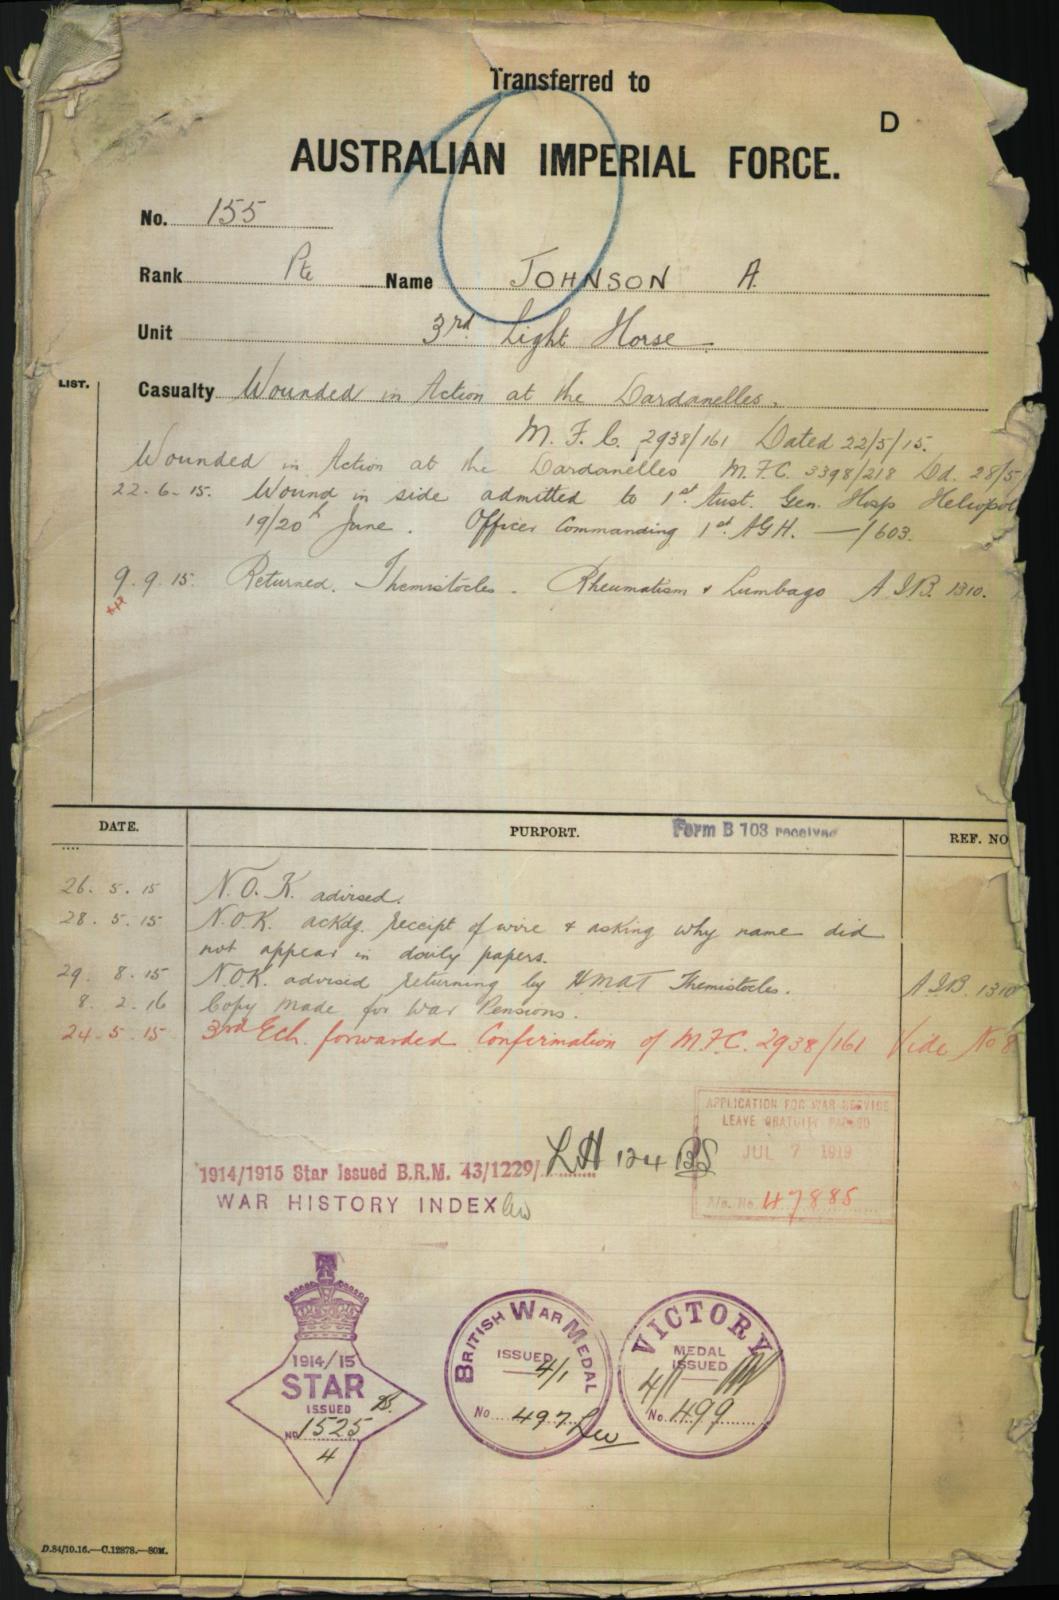 Transferred to
D
AUSTRALIAN IMPERIAL FORCE.
No. 155
Rank Pte Name JOHNSON A.
Unit 3rd. Light Horse
LIST.
Casualty Wounded in Action at the Dardanelles.
M. F. C. 2938/161 Dated 22/5/15.
Wounded in Action at the Dardanelles M.F.C. 3398/218 Dd. 28/5/
22.6.15. Wound in side admitted to 1st Aust. Gen. Hosp Heliopol
19/20th June. Officer Commanding 1st. AGH. —/603.
9.9.15. Returned. Themistocles. Rheumatism & Lumbago A.I.B. 1310.
DATE. PURPORT. Form B 103 received REF. NO
26.5.15 N.O.K. advised.
28.5.15 N.O.K. ackdg. receipt of wire & asking why name did
not appear in daily papers.
29.8.15 N.O.K. advised returning by HMAT Themistocles. A.I.B. 1310
8.2.16 Copy made for War Pensions.
24.5.15 3rd Ech. forwarded Confirmation of M.F.C. 2938/161 Vide No 8
APPLICATION FOR WAR SERVICE
LEAVE GRATUITY PASSED
JUL 7 1919
No. 47885
1914/1915 Star Issued B.R.M. 43/1229/ LH 124 BS
WAR HISTORY INDEX
1914/15
STAR
ISSUED
No 1525
4
BRITISH WAR MEDAL
ISSUED
4/1
No. 497
VICTORY
MEDAL
ISSUED
4/1
No. 499
D.84/10.16.—C.12878.—50M.